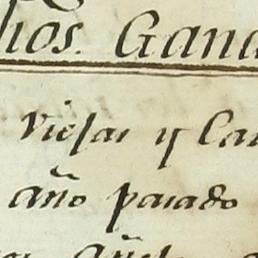 hos. Gana
Viejas y Ca
año pasado